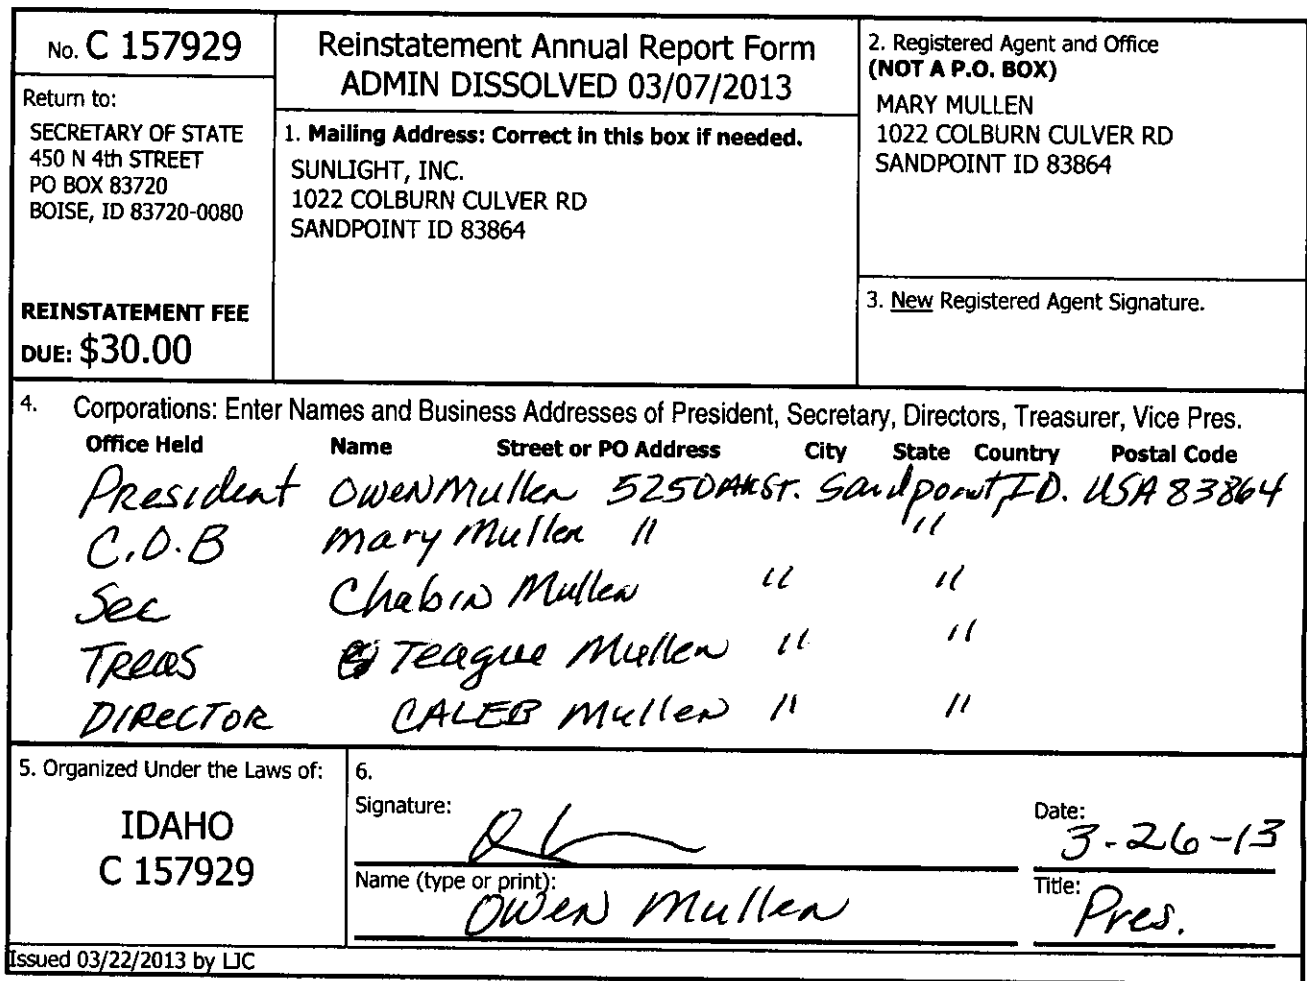 No. C 157929
Return to:
SECRETARY OF STATE
450 N 4th STREET
PO BOX 83720
BOISE, ID 83720-0080
REINSTATEMENT FEE
DUE: $30.00
Reinstatement Annual Report Form
ADMIN DISSOLVED 03/07/2013
1. Mailing Address: Correct in this box if needed.
SUNLIGHT, INC.
1022 COLBURN CULVER RD
SANDPOINT ID 83864
2. Registered Agent and Office
(NOT A P.O. BOX)
MARY MULLEN
1022 COLBURN CULVER RD
SANDPOINT ID 83864
3. New Registered Agent Signature.
4. Corporations: Enter Names and Business Addresses of President, Secretary, Directors, Treasurer, Vice Pres.
Office Held Name Street or PO Address City State Country Postal Code
President Owen Mullen 525 OAK ST. Sandpoint, ID. USA 83864
C.O.B Mary Mullen " "
Sec Chabin Mullen " "
Treas Teague Mullen " "
DIRECTOR CALEB Mullen " "
5. Organized Under the Laws of:
IDAHO
C 157929
6.
Signature:
Date: 3-26-13
Name (type or print): Owen Mullen
Title: Pres.
Issued 03/22/2013 by LJC